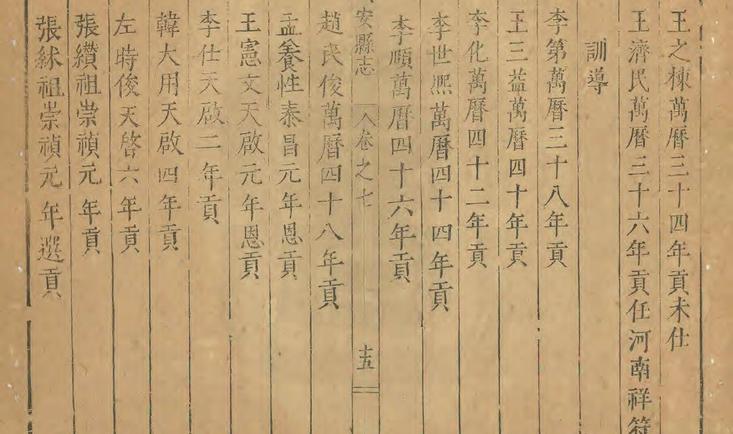 王之棟萬曆三十四年貢未仕
王濟民萬曆三十六年貢任河南祥符
訓導
李第萬曆三十八年貢
王三益萬曆四十年貢
李化萬曆四十二年貢
李世熙萬曆四十四年貢
李順萬曆四十六年貢
安縣志 卷之七 十五
趙民俊萬曆四十八年貢
孟養性泰昌元年恩貢
王憲文天啟元年恩貢
李仕天啟二年貢
韓大用天啟四年貢
左時俊天啓六年貢
張纘祖崇禎元年貢
張絿祖崇禎元年選貢